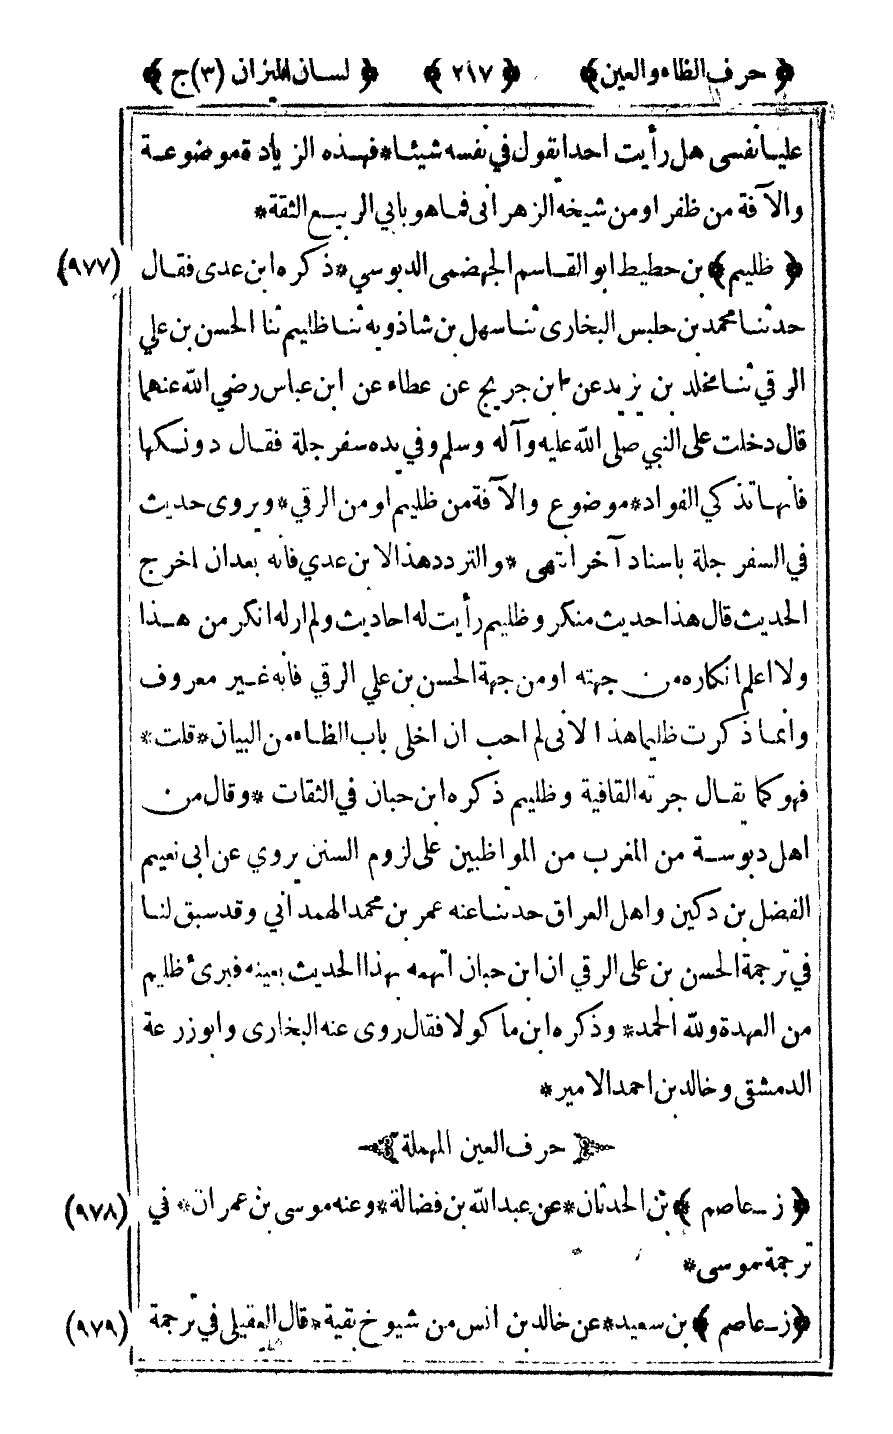 ﴿ حرف الظاء والعين ﴾ ﴿ ٢١٧ ﴾ ﴿ لسان الميزان (٣) ج ﴾
عليا نفسى هل رأيت احدا يقول في نفسه شيئا * فهذه الزيادة موضوعة
والآفة من ظفر او من شيخه الزهرانى فما هو بابي الربيع الثقة *
﴿ ظليم ﴾ بن حطيط ابو القاسم الجهضمى الدبوسي * ذكره ابن عدى فقال (٩٧٧)
حدثنا محمد بن حلبس البخارى ثنا سهل بن شاذويه ثنا ظليم ثنا الحسن بن علي
الرقي ثنا مخلد بن يزيد عن ابن جريج عن عطاء عن ابن عباس رضي الله عنهما
قال دخلت على النبي صلى الله عليه وآله وسلم وفي يده سفرجلة فقال دونكها
فانها تذكي الفواد * موضوع والآفة من ظليم او من الرقي * ويروى حديث
في السفرجلة باسناد آخر انتهى * والتردد هذا لابن عدي فانه بعد ان اخرج
الحديث قال هذا حديث منكر وظليم رأيت له احاديث ولم ار له انكر من هذا
ولا اعلم انكاره من جهته او من جهة الحسن بن علي الرقي فانه غير معروف
وانما ذكرت ظليما هذا لانى لم احب ان اخلى باب الظاء من البيان * قلت *
فهو كما يقال جرته القافية وظليم ذكره ابن حبان في الثقات * وقال من
اهل دبوسة من المغرب من المواظبين على لزوم السنن يروي عن ابى نعيم
الفضل بن دكين واهل العراق حدثنا عنه عمر بن محمد الهمداني وقد سبق لنا
في ترجمة الحسن بن على الرقي ان ابن حبان اتهمه بهذا الحديث بعينه فبرئ ظليم
من العهدة ولله الحمد * وذكره ابن ماكولا فقال روى عنه البخارى وابو زرعة
الدمشقى وخالد بن احمد الامير *
حرف العين المهملة
﴿ ز ـ عاصم ﴾ بن الحدثان * عن عبد الله بن فضالة * وعنه موسى بن عمران * في (٩٧٨)
ترجمة موسى *
﴿ ز ـ عاصم ﴾ بن سعيد * عن خالد بن انس من شيوخ بقية * قال العقيلى في ترجمة (٩٧٩)